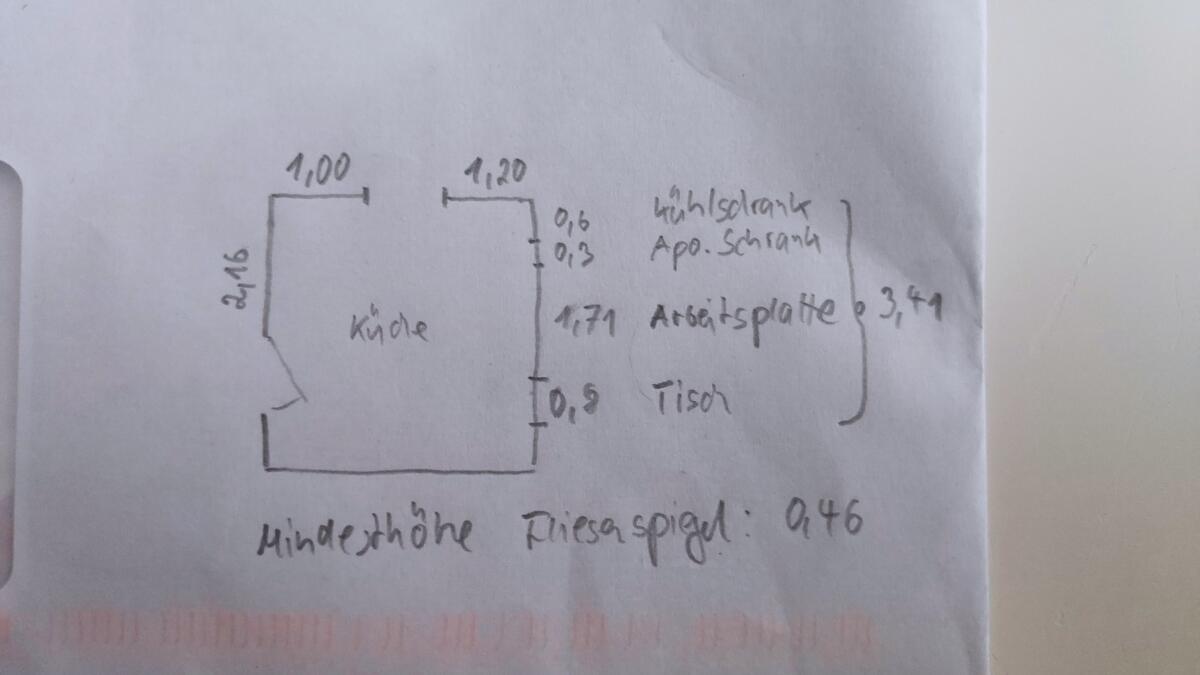 1,00
1,20
2,16
Küche
0,6 Kühlschrank
0,3 Apo. Schrank
1,71 Arbeitsplatte
3,41
0,8 Tisch
Mindesthöhe Fliesenspigel: 0,46